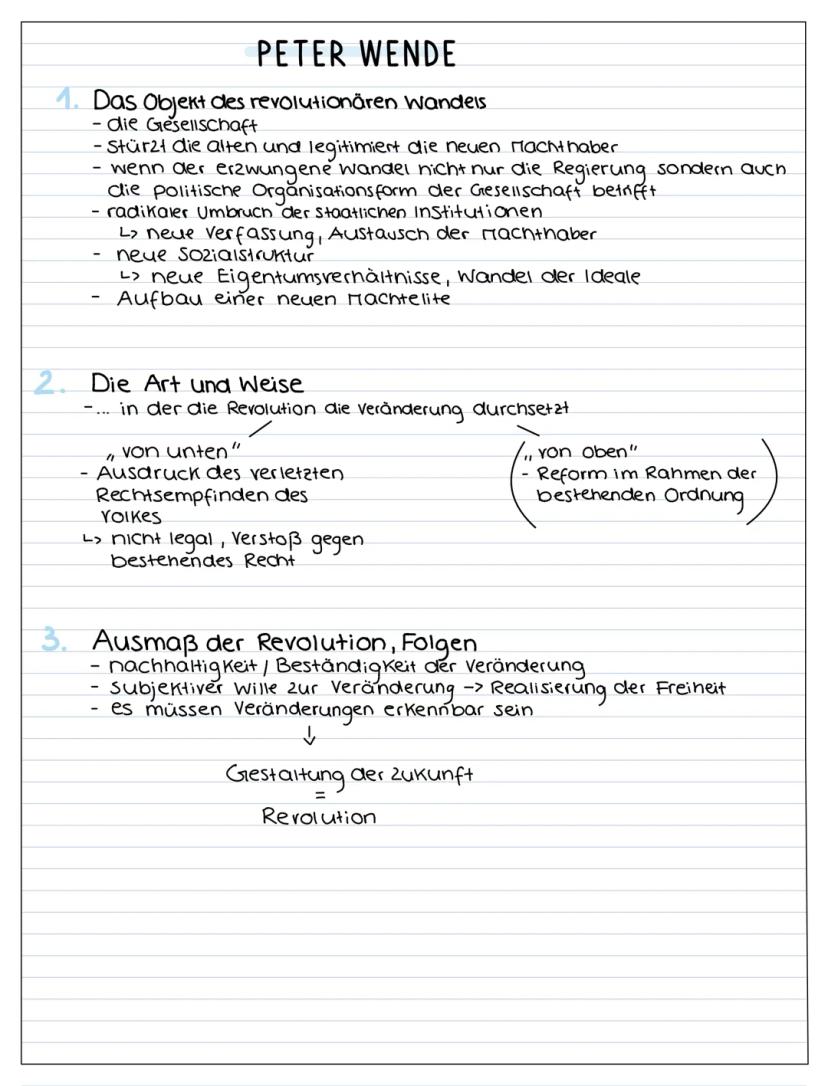 PETER WENDE
1. Das Objekt des revolutionären Wandels
- die Gesellschaft
- stürzt die alten und legitimiert die neuen Machthaber
- wenn der erzwungene Wandel nicht nur die Regierung sondern auch
die politische Organisationsform der Gesellschaft betrifft
- radikaler Umbruch der staatlichen Institutionen
↳ neue Verfassung, Austausch der Machthaber
- neue Sozialstruktur
↳ neue Eigentumsverhältnisse, Wandel der Ideale
- Aufbau einer neuen Machtelite
2. Die Art und Weise
-... in der die Revolution die Veränderung durchsetzt
„von unten"
- Ausdruck des verletzten
Rechtsempfinden des
Volkes
↳ nicht legal, Verstoß gegen
bestehendes Recht
(„von oben"
- Reform im Rahmen der
bestehenden Ordnung)
3. Ausmaß der Revolution, Folgen
- nachhaltigkeit / Beständigkeit der Veränderung
- subjektiver Wille zur Veränderung -> Realisierung der Freiheit
- es müssen Veränderungen erkennbar sein
↓
Gestaltung der Zukunft
=
Revolution